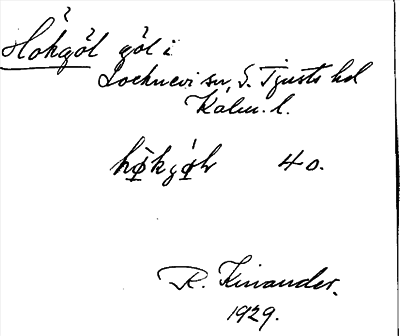 Hökgöl göl i
Locknevi sn, S. Tjusts hd
Kalm. l.
40.
R. Kinander.
1929.